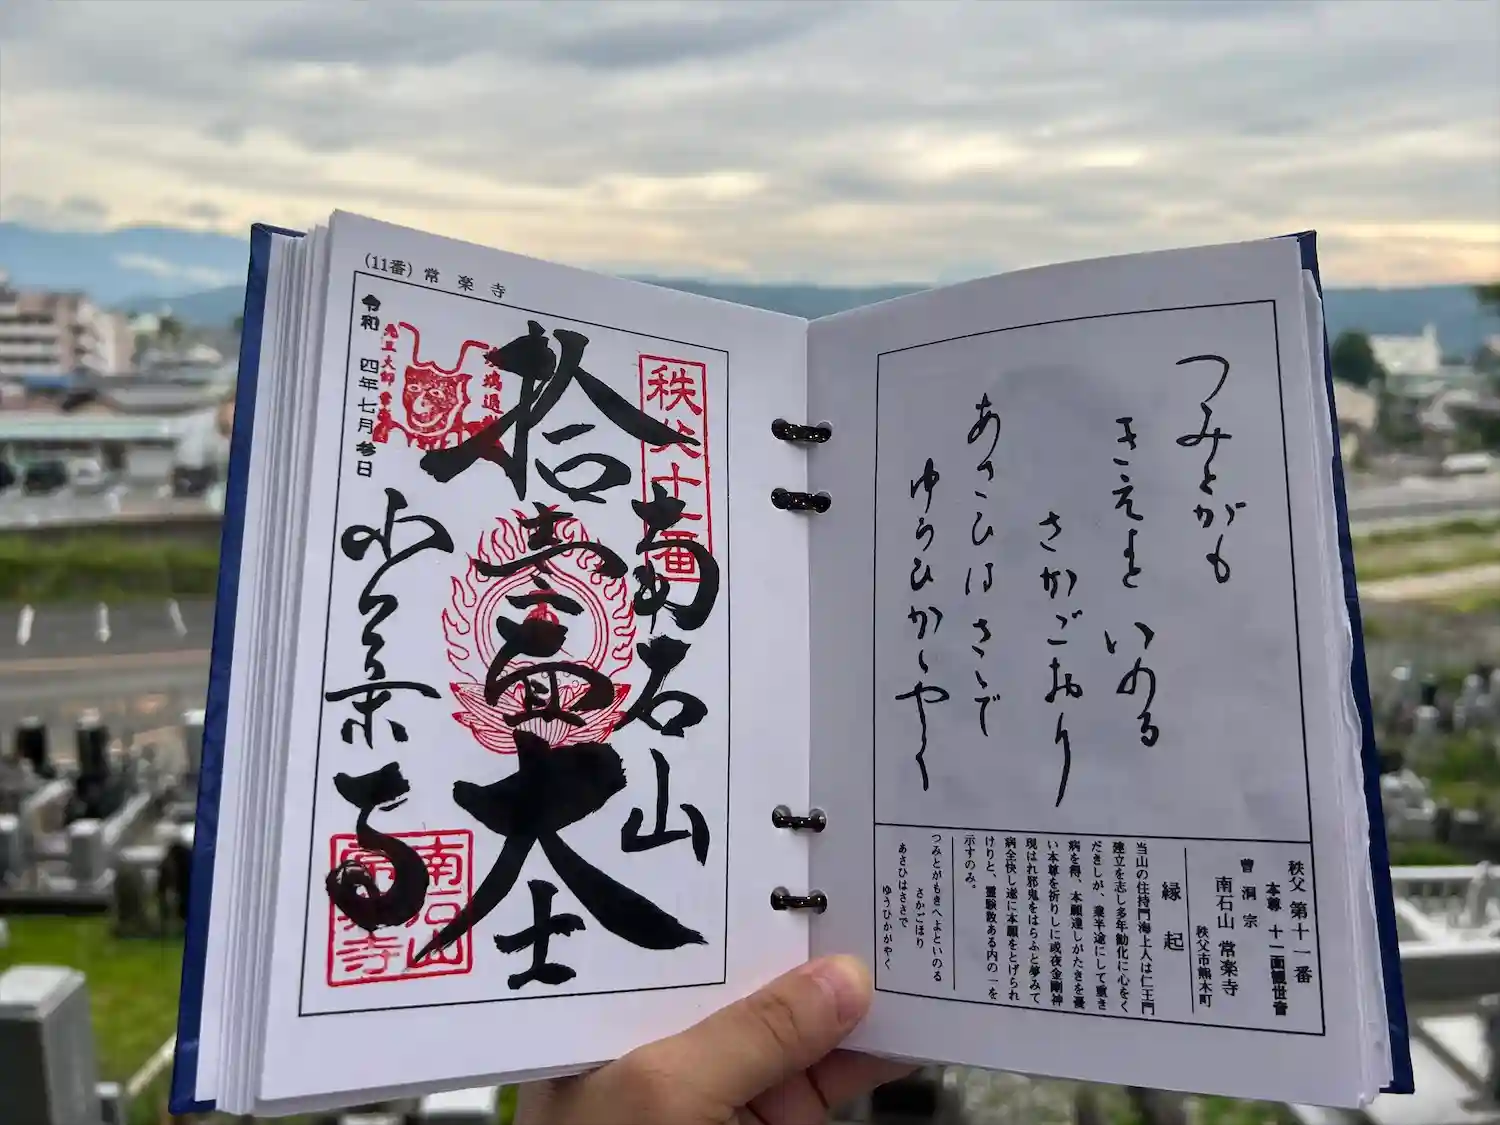 (11番) 常楽寺
秩父十一番
南石山
拾壹面大士
常楽寺
令和 四年七月参日
元三大師
南石山
常楽寺
つみとがも
きえよと いのる
さかごおり
あさひはささで
ゆうひかゞやく
秩父 第十一番
本尊 十一面観世音
曹洞宗
南石山 常楽寺
秩父市熊木町
縁起
当山の住持門海上人は仁王門
建立を志し多年勧化に心をく
だきしが、業半途にして重き
病を得、本願達しがたきを憂
い本尊を祈りしに或夜金剛神
現はれ邪鬼をはらふと夢みて
病全快し遂に本願をとげられ
けりと、霊験数ある内の一を
示すのみ。
つみとがもきへよといのる
さかごほり
あさひはささで
ゆうひかがやく